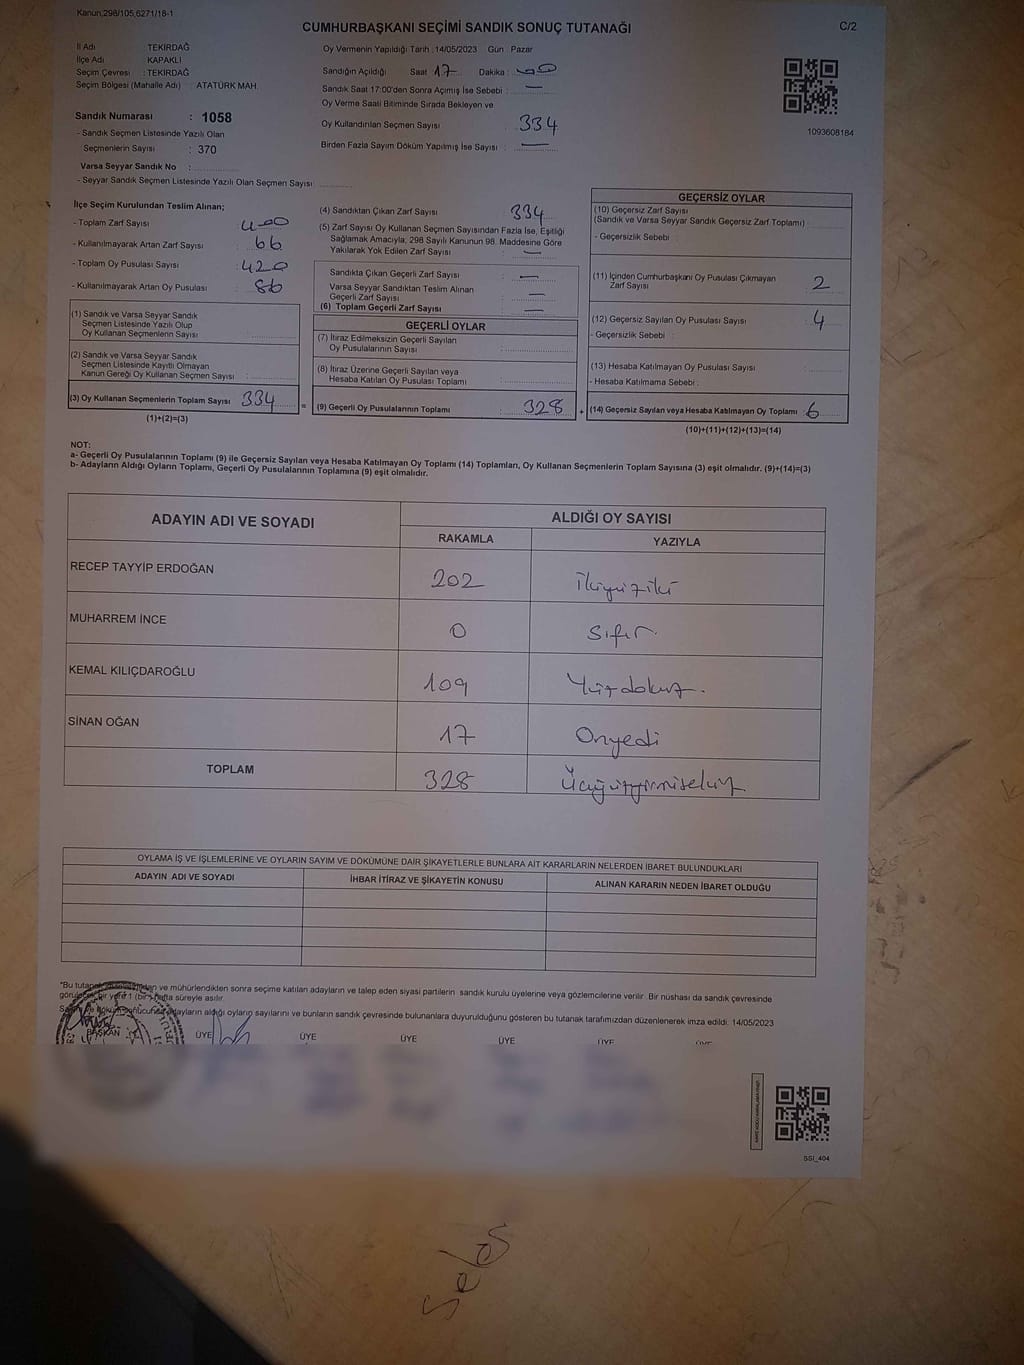 Kanun;298/105,6271/18-1
CUMHURBAŞKANI SEÇİMİ SANDIK SONUÇ TUTANAĞI
C/2
İl Adı : TEKİRDAĞ
İlçe Adı : KAPAKLI
Seçim Çevresi : TEKİRDAĞ
Seçim Bölgesi (Mahalle Adı) : ATATÜRK MAH.
Sandık Numarası : 1058
- Sandık Seçmen Listesinde Yazılı Olan
Seçmenlerin Sayısı : 370
Varsa Seyyar Sandık No :
- Seyyar Sandık Seçmen Listesinde Yazılı Olan Seçmen Sayısı :
Oy Vermenin Yapıldığı Tarih :14/05/2023 Gün : Pazar
Sandığın Açıldığı Saat 17 Dakika : 00
Sandık Saat 17:00'den Sonra Açımış İse Sebebi : —
Oy Verme Saati Bitiminde Sırada Bekleyen ve
Oy Kullandırılan Seçmen Sayısı : 334
Birden Fazla Sayım Döküm Yapılmış İse Sayısı : —
1093608184
İlçe Seçim Kurulundan Teslim Alınan;
- Toplam Zarf Sayısı : 400
- Kullanılmayarak Artan Zarf Sayısı : 66
- Toplam Oy Pusulası Sayısı : 420
- Kullanılmayarak Artan Oy Pusulası : 86
(1) Sandık ve Varsa Seyyar Sandık
Seçmen Listesinde Yazılı Olup
Oy Kullanan Seçmenlerin Sayısı :
(2) Sandık ve Varsa Seyyar Sandık
Seçmen Listesinde Kayıtlı Olmayan
Kanun Gereği Oy Kullanan Seçmen Sayısı :
(3) Oy Kullanan Seçmenlerin Toplam Sayısı : 334
(1)+(2)=(3)
=
(4) Sandıktan Çıkan Zarf Sayısı : 334
(5) Zarf Sayısı Oy Kullanan Seçmen Sayısından Fazla İse, Eşitliği
Sağlamak Amacıyla, 298 Sayılı Kanunun 98. Maddesine Göre
Yakılarak Yok Edilen Zarf Sayısı : —
Sandıkta Çıkan Geçerli Zarf Sayısı : —
Varsa Seyyar Sandıktan Teslim Alınan
Geçerli Zarf Sayısı : —
(6) Toplam Geçerli Zarf Sayısı : —
GEÇERLİ OYLAR
(7) İtiraz Edilmeksizin Geçerli Sayılan
Oy Pusulalarının Sayısı :
(8) İtiraz Üzerine Geçerli Sayılan veya
Hesaba Katılan Oy Pusulası Toplamı :
(9) Geçerli Oy Pusulalarının Toplamı : 328
+
GEÇERSİZ OYLAR
(10) Geçersiz Zarf Sayısı
(Sandık ve Varsa Seyyar Sandık Geçersiz Zarf Toplamı) :
- Geçersizlik Sebebi :
(11) İçinden Cumhurbaşkanı Oy Pusulası Çıkmayan
Zarf Sayısı : 2
(12) Geçersiz Sayılan Oy Pusulası Sayısı : 4
- Geçersizlik Sebebi :
(13) Hesaba Katılmayan Oy Pusulası Sayısı :
- Hesaba Katılmama Sebebi :
(14) Geçersiz Sayılan veya Hesaba Katılmayan Oy Toplamı : 6
(10)+(11)+(12)+(13)=(14)
NOT:
a- Geçerli Oy Pusulalarının Toplamı (9) ile Geçersiz Sayılan veya Hesaba Katılmayan Oy Toplamı (14) Toplamları, Oy Kullanan Seçmenlerin Toplam Sayısına (3) eşit olmalıdır. (9)+(14)=(3)
b- Adayların Aldığı Oyların Toplamı, Geçerli Oy Pusulalarının Toplamına (9) eşit olmalıdır.
ADAYIN ADI VE SOYADI
ALDIĞI OY SAYISI
RAKAMLA YAZIYLA
RECEP TAYYİP ERDOĞAN 202 İkiyüziki
MUHARREM İNCE 0 Sıfır
KEMAL KILIÇDAROĞLU 109 Yüzdokuz.
SİNAN OĞAN 17 Onyedi
TOPLAM 328 Üçyüzyirmisekiz
OYLAMA İŞ VE İŞLEMLERİNE VE OYLARIN SAYIM VE DÖKÜMÜNE DAİR ŞİKAYETLERLE BUNLARA AİT KARARLARIN NELERDEN İBARET BULUNDUKLARI
ADAYIN ADI VE SOYADI İHBAR İTİRAZ VE ŞİKAYETİN KONUSU ALINAN KARARIN NEDEN İBARET OLDUĞU
*Bu tutanak ve mühürlendikten sonra seçime katılan adayların ve talep eden siyasi partilerin sandık kurulu üyelerine veya gözlemcilerine verilir. Bir nüshası da sandık çevresinde
bir yere 1 (bir) hafta süreyle asılır.
adayların aldığı oyların sayılarını ve bunların sandık çevresinde bulunanlara duyurulduğunu gösteren bu tutanak tarafımızdan düzenlenerek imza edildi. 14/05/2023
BAŞKAN ÜYE ÜYE ÜYE ÜYE ÜYE ÜYE
SSI_404